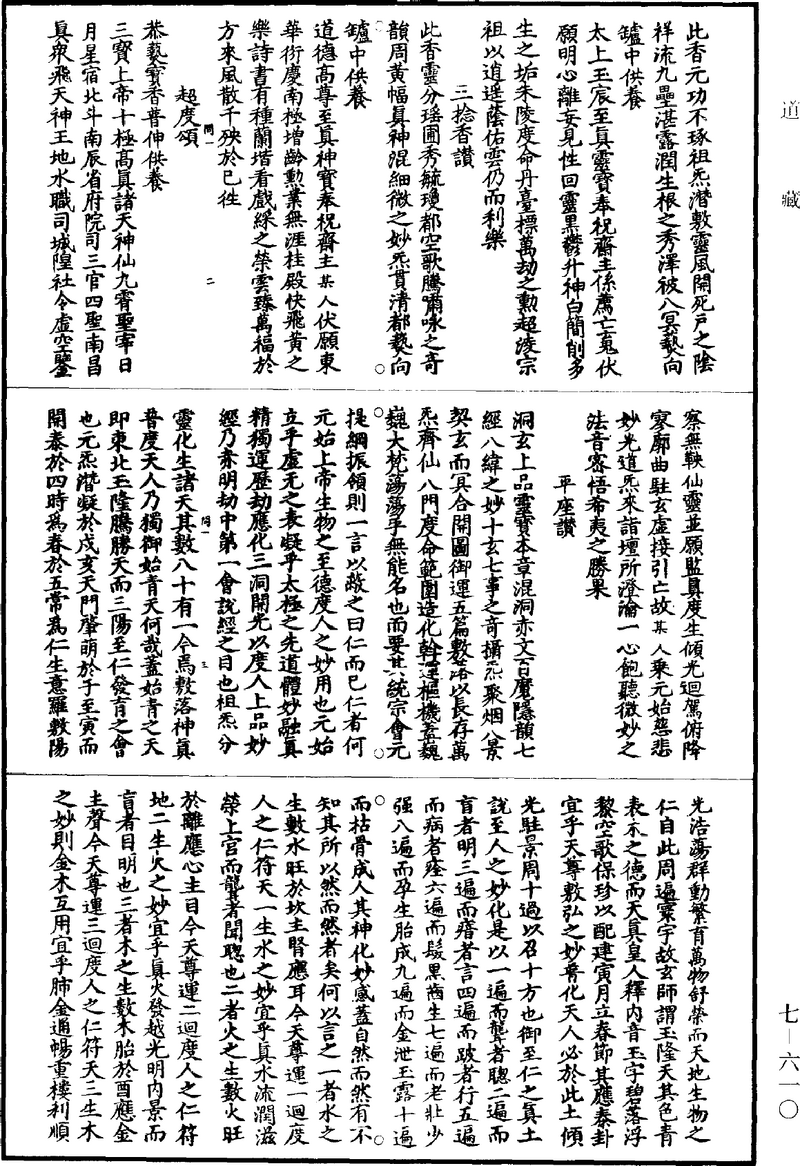 道藏
此香元功不琢祖炁潛敷靈風開死戶之陰
祥流九壘湛露潤生根之秀澤彼八冥爇向
鑪中供養
太上玉宸至真靈寶奉祝齋主係薦亡䰟伏
願明心離妄見性回靈黑鬱升神白簡削多
生之垢朱陵度命丹臺標萬劫之勳超淩宗
祖以逍遥蔭佑雲仍而利樂
三捻香讃
此香靈分瑶圃秀毓瓊都空歌騰嘯咏之奇
韻周黄幅真神混細微之妙炁貫清都爇向
鑪中供養
道德高尊至真神寶奉祝齋主某人伏願東
華衍慶南極增齡勲業無涯桂殿快飛黄之
樂詩書有種蘭堦看戲綵之榮雲臻萬福於
方來風散千殃於已徃
超度頌
同一
二
恭爇寶香普伸供養
三寶上帝十極高真諸天神仙九霄聖宰日
月星宿北斗南辰省府院司三官四聖南昌
真衆飛天神王地水職司城隍社令虚空鑒
察無鞅仙靈並願監真度生傾光迴駕俯降
寥廓曲駐玄虚接引亡故某人乗元始慈悲
妙光道炁來詣壇所澄瀹一心飽聽微妙之
法音密悟希夷之勝果
平座讃
洞玄上品靈寶本章混洞赤文百魔隱韻七
經八緯之妙十玄七事之奇攝炁聚烟八景
契玄而冥合開圖御運五篇敷落以長存萬
炁齊仙八門度命範圍造化斡運樞機蓋巍
巍大梵蕩蕩乎無能名也而要其統宗會元
提綱振領則一言以蔽之曰仁而已仁者何
元始上帝生物之至德度人之妙用也元始
立乎虚无之表凝乎太極之先道體妙融真
精獨運歷劫應化三洞開光以度人上品妙
經乃赤明劫中第一會說經之目也祖炁分
靈化生諸天其數八十有一今焉敷落神真
同一
三
普度天人乃獨御始青天何哉蓋始青之天
即東北玉隆騰勝天而三陽至仁發育之會
也元炁潛凝於戍亥天門肇萌於子至寅而
開泰於四時爲春於五常爲仁生意羅敷陽
光浩蕩群動繁育萬物舒榮而天地生物之
仁自此周遍寰宇故玄師謂玉隆天其色青
表木之德而天真皇人釋内音玉字碧落浮
黎空歌保珍以配建寅月立春節其應泰卦
宜乎天尊敷弘之妙普化天人必於此土傾
光駐景周十過以召十方也御至仁之真土
說至人之妙化是以一遍而聾者聰二遍而
盲者明三遍而瘖者言四遍而跛者行五遍
而病者痊六遍而髮黑齒生七遍而老壯少
强八遍而孕生胎成九遍而金泄玉露十遍
而枯骨成人其神化妙感蓋自然而然有不
知其所以然而然者矣何以言之一者水之
生數水旺於坎主腎應耳今天尊運一迴度
人之仁符天一生水之妙宜乎真水流潤滋
榮上宫而聾者聞聰也二者火之生數火旺
於離應心主目今天尊運二迴度人之仁符
地二生火之妙宜乎真火發越光明内景而
盲者目明也三者木之生數木胎於酉應金
主聲今天尊運三迴度人之仁符天三生木
之妙則金木互用宜乎肺金通暢重樓利順
七—六一〇